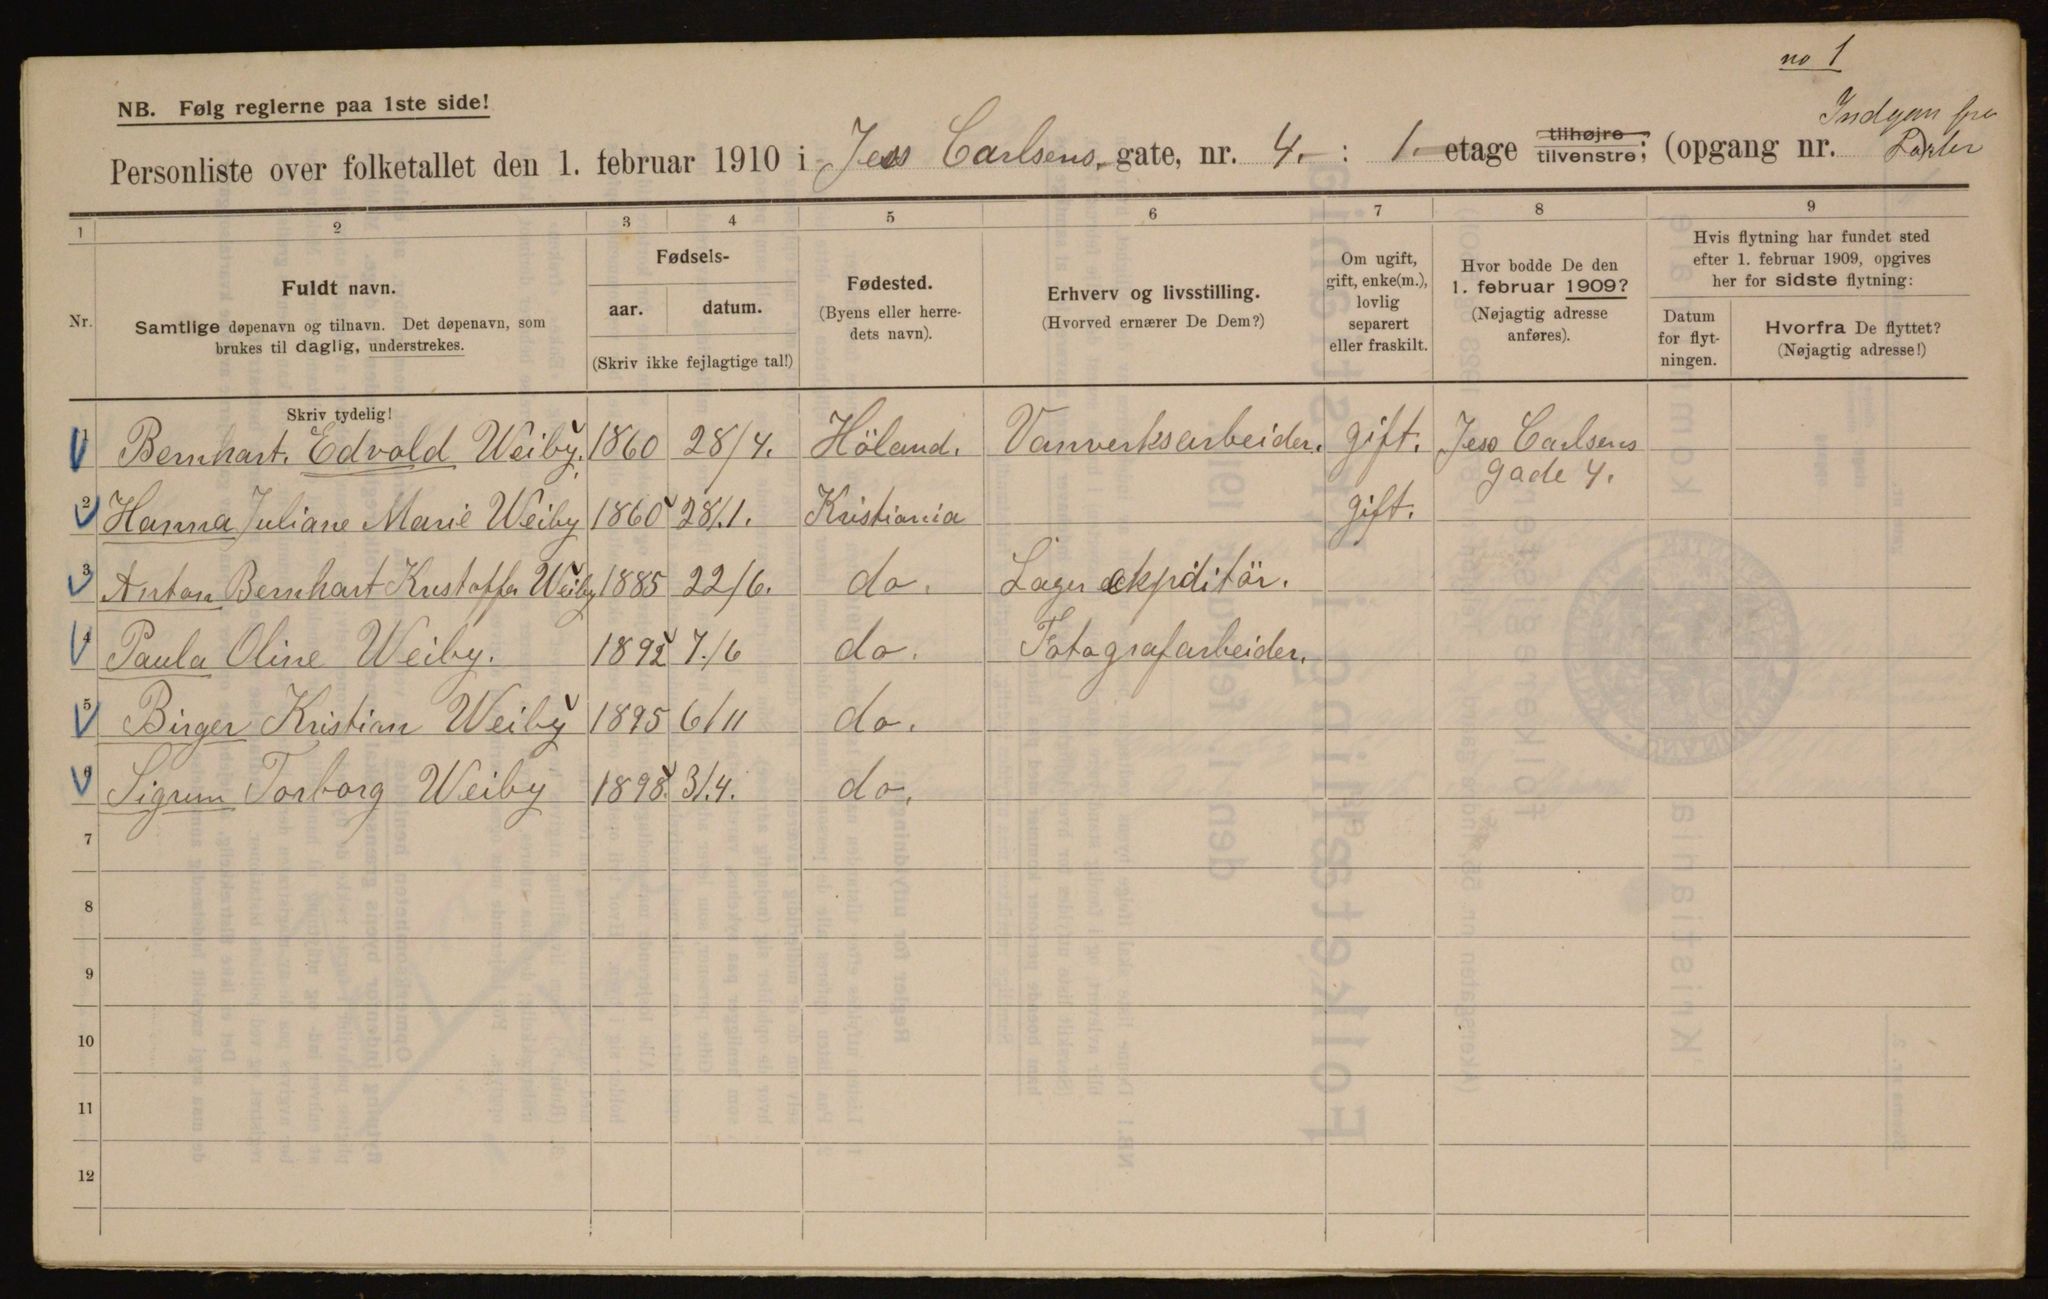 no 1
NB. Følg reglerne paa 1ste side!
Indgan fra
Personliste over folketallet den 1. februar 1910 i Jess Carlsens gate, nr. 4. : 1. etage tilhøjre tilvenstre; (opgang nr.
1 2 3 4 5 6 7 8 9
Nr.
Fuldt navn.
Samtlige døpenavn og tilnavn. Det døpenavn, som
brukes til daglig, understrekes.
Skriv tydelig!
Fødsels-
aar. datum.
(Skriv ikke fejlagtige tal!)
Fødested.
(Byens eller herre-
dets navn).
Erhverv og livsstilling.
(Hvorved ernærer De Dem?)
Om ugift,
gift, enke(m.),
lovlig
separert
eller fraskilt.
Hvor bodde De den
1. februar 1909?
(Nøjagtig adresse
anføres).
Hvis flytning har fundet sted
efter 1. februar 1909, opgives
her for sidste flytning:
Datum
for flyt-
ningen.
Hvorfra De flyttet?
(Nøjagtig adresse!)
1 Bernhart. Edvold Weiby. 1860 28/4. Höland. Vanverksarbeider. gift. Jess Carlsens
gade 4.
2 Hanna Juliane Marie Weiby 1860 28/1. Kristiania gift.
3 Anton Bernhart Kristoffer Weiby 1885 22/6. do. Lager ekpiditör.
4 Paula Oline Weiby. 1892 7/6 do. Fotografarbeider.
5 Birger Kristian Weiby 1895 6/11 do.
6 Sigrun Torborg Weiby 1898. 3/4. do.
7
8
9
10
11
12